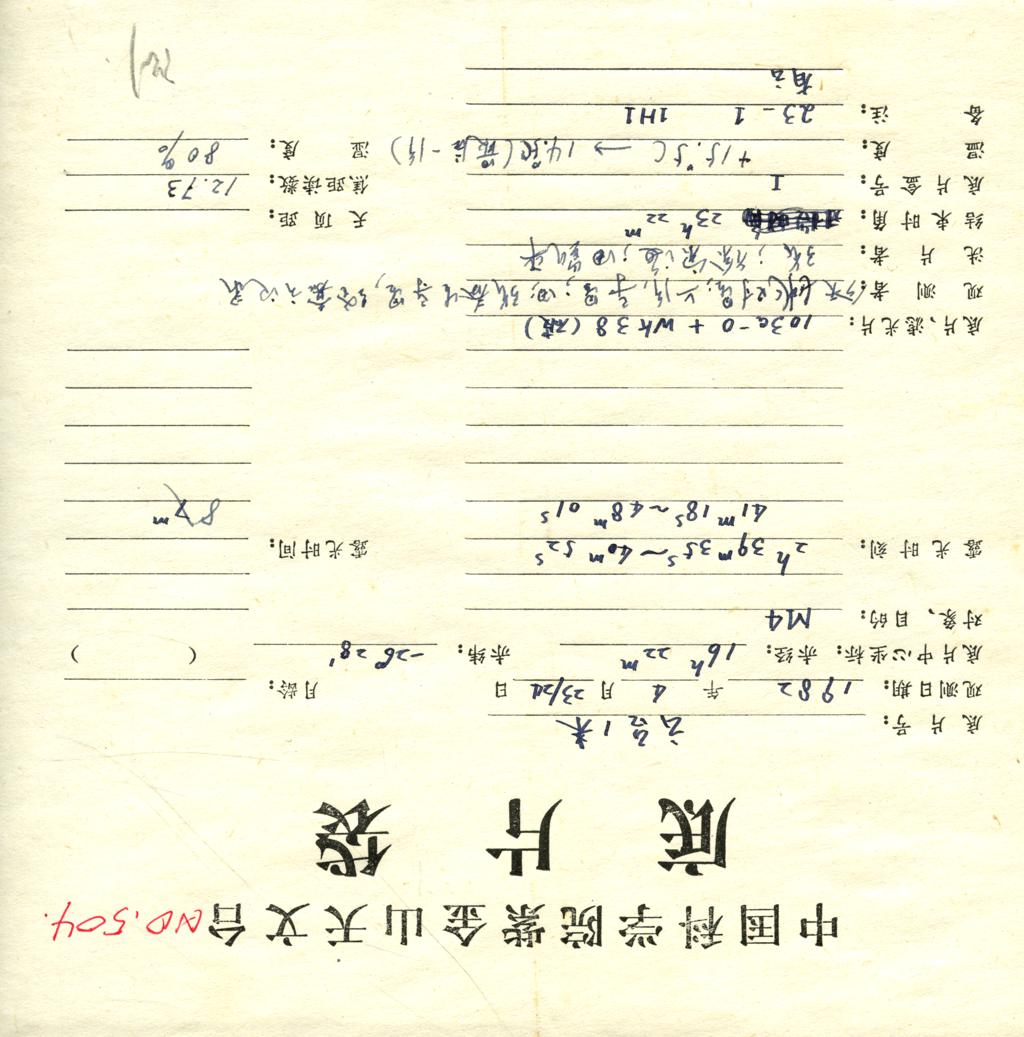 中国科学院紫金山天文台 NO.504.
底片袋
底片号: 云台1米
观测日期: 1982年4月23/24日 月龄:
底片中心坐标: 赤经: 16h 22m 赤纬: -26°28' ( )
对象、目的: M4
露光时刻: 2h 39m 35s~40m 52s 露光时间:
41m 18s~48m 01s 8m
底片、滤光片: 103a-O + WK38 ( )
观测者:
洗片者:
结束时角: 23h 22m 天顶距:
底片盒号: I 焦距读数: 12.73
温度: +15.°5C → 14.°8C (最后-1片) 湿度: 80%
备注: 23-1 1H1